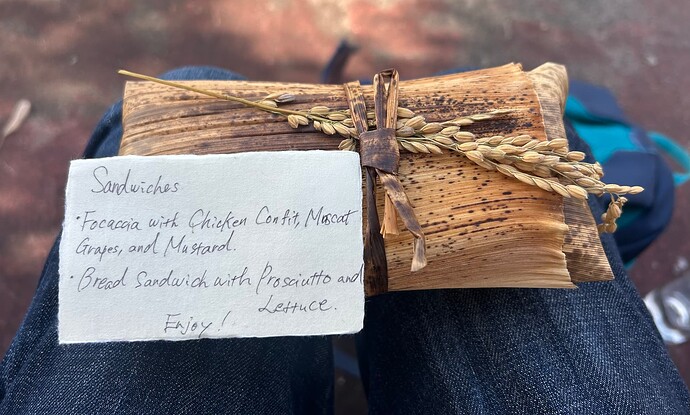 Sandwiches
• Focaccia with Chicken Confit, Muscat
Grapes, and Mustard.
• Bread Sandwich with Prosciutto and
Lettuce.
Enjoy!